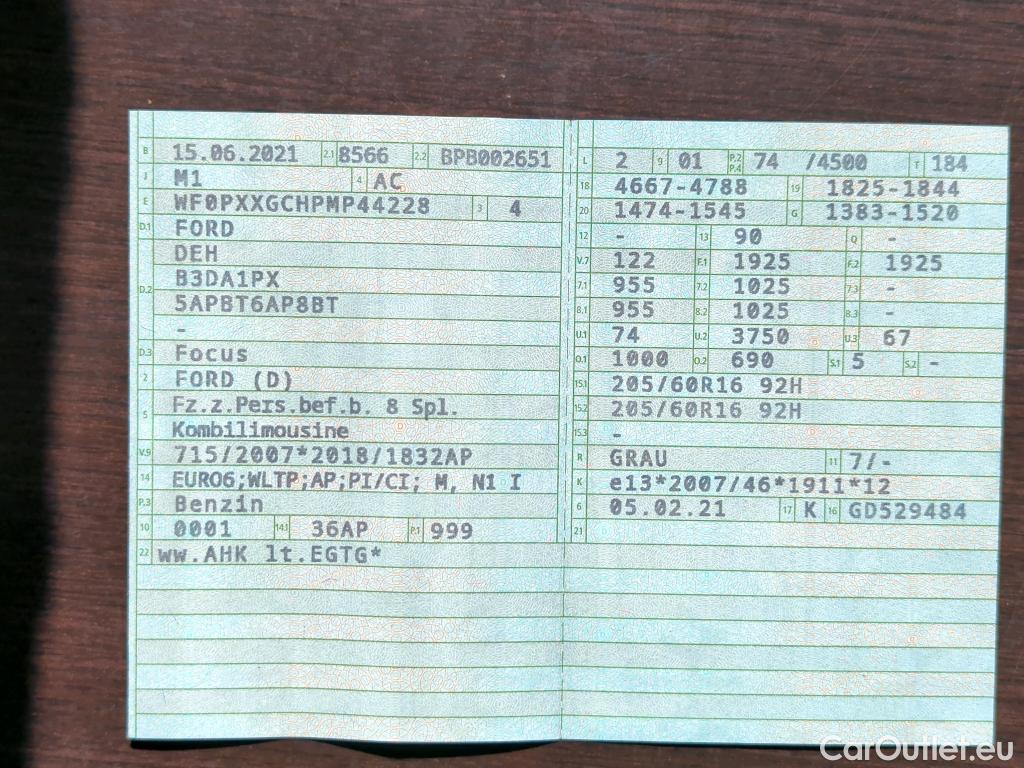 B 15.06.2021 2.1 8566 2.2 BPB002651
J M1 4 AC
E WF0PXXGCHPMP44228 3 4
D.1 FORD
DEH
D.2 B3DA1PX
5APBT6AP8BT
-
D.3 Focus
2 FORD (D)
5 Fz.z.Pers.bef.b. 8 Spl.
Kombilimousine
V.9 715/2007*2018/1832AP
14 EURO6;WLTP;AP;PI/CI; M, N1 I
P.3 Benzin
10 0001 14.1 36AP P.1 999
22 ww.AHK lt.EGTG*
L 2 9 01 P.2 P.4 74 /4500 T 184
18 4667-4788 19 1825-1844
20 1474-1545 G 1383-1520
12 - 13 90 Q -
V.7 122 F.1 1925 F.2 1925
7.1 955 7.2 1025 7.3 -
8.1 955 8.2 1025 8.3 -
U.1 74 U.2 3750 U.3 67
O.1 1000 O.2 690 S.1 5 S.2 -
15.1 205/60R16 92H
15.2 205/60R16 92H
15.3 -
R GRAU 11 7/-
K e13*2007/46*1911*12
6 05.02.21 17 K 16 GD529484
21
CarOutlet.eu